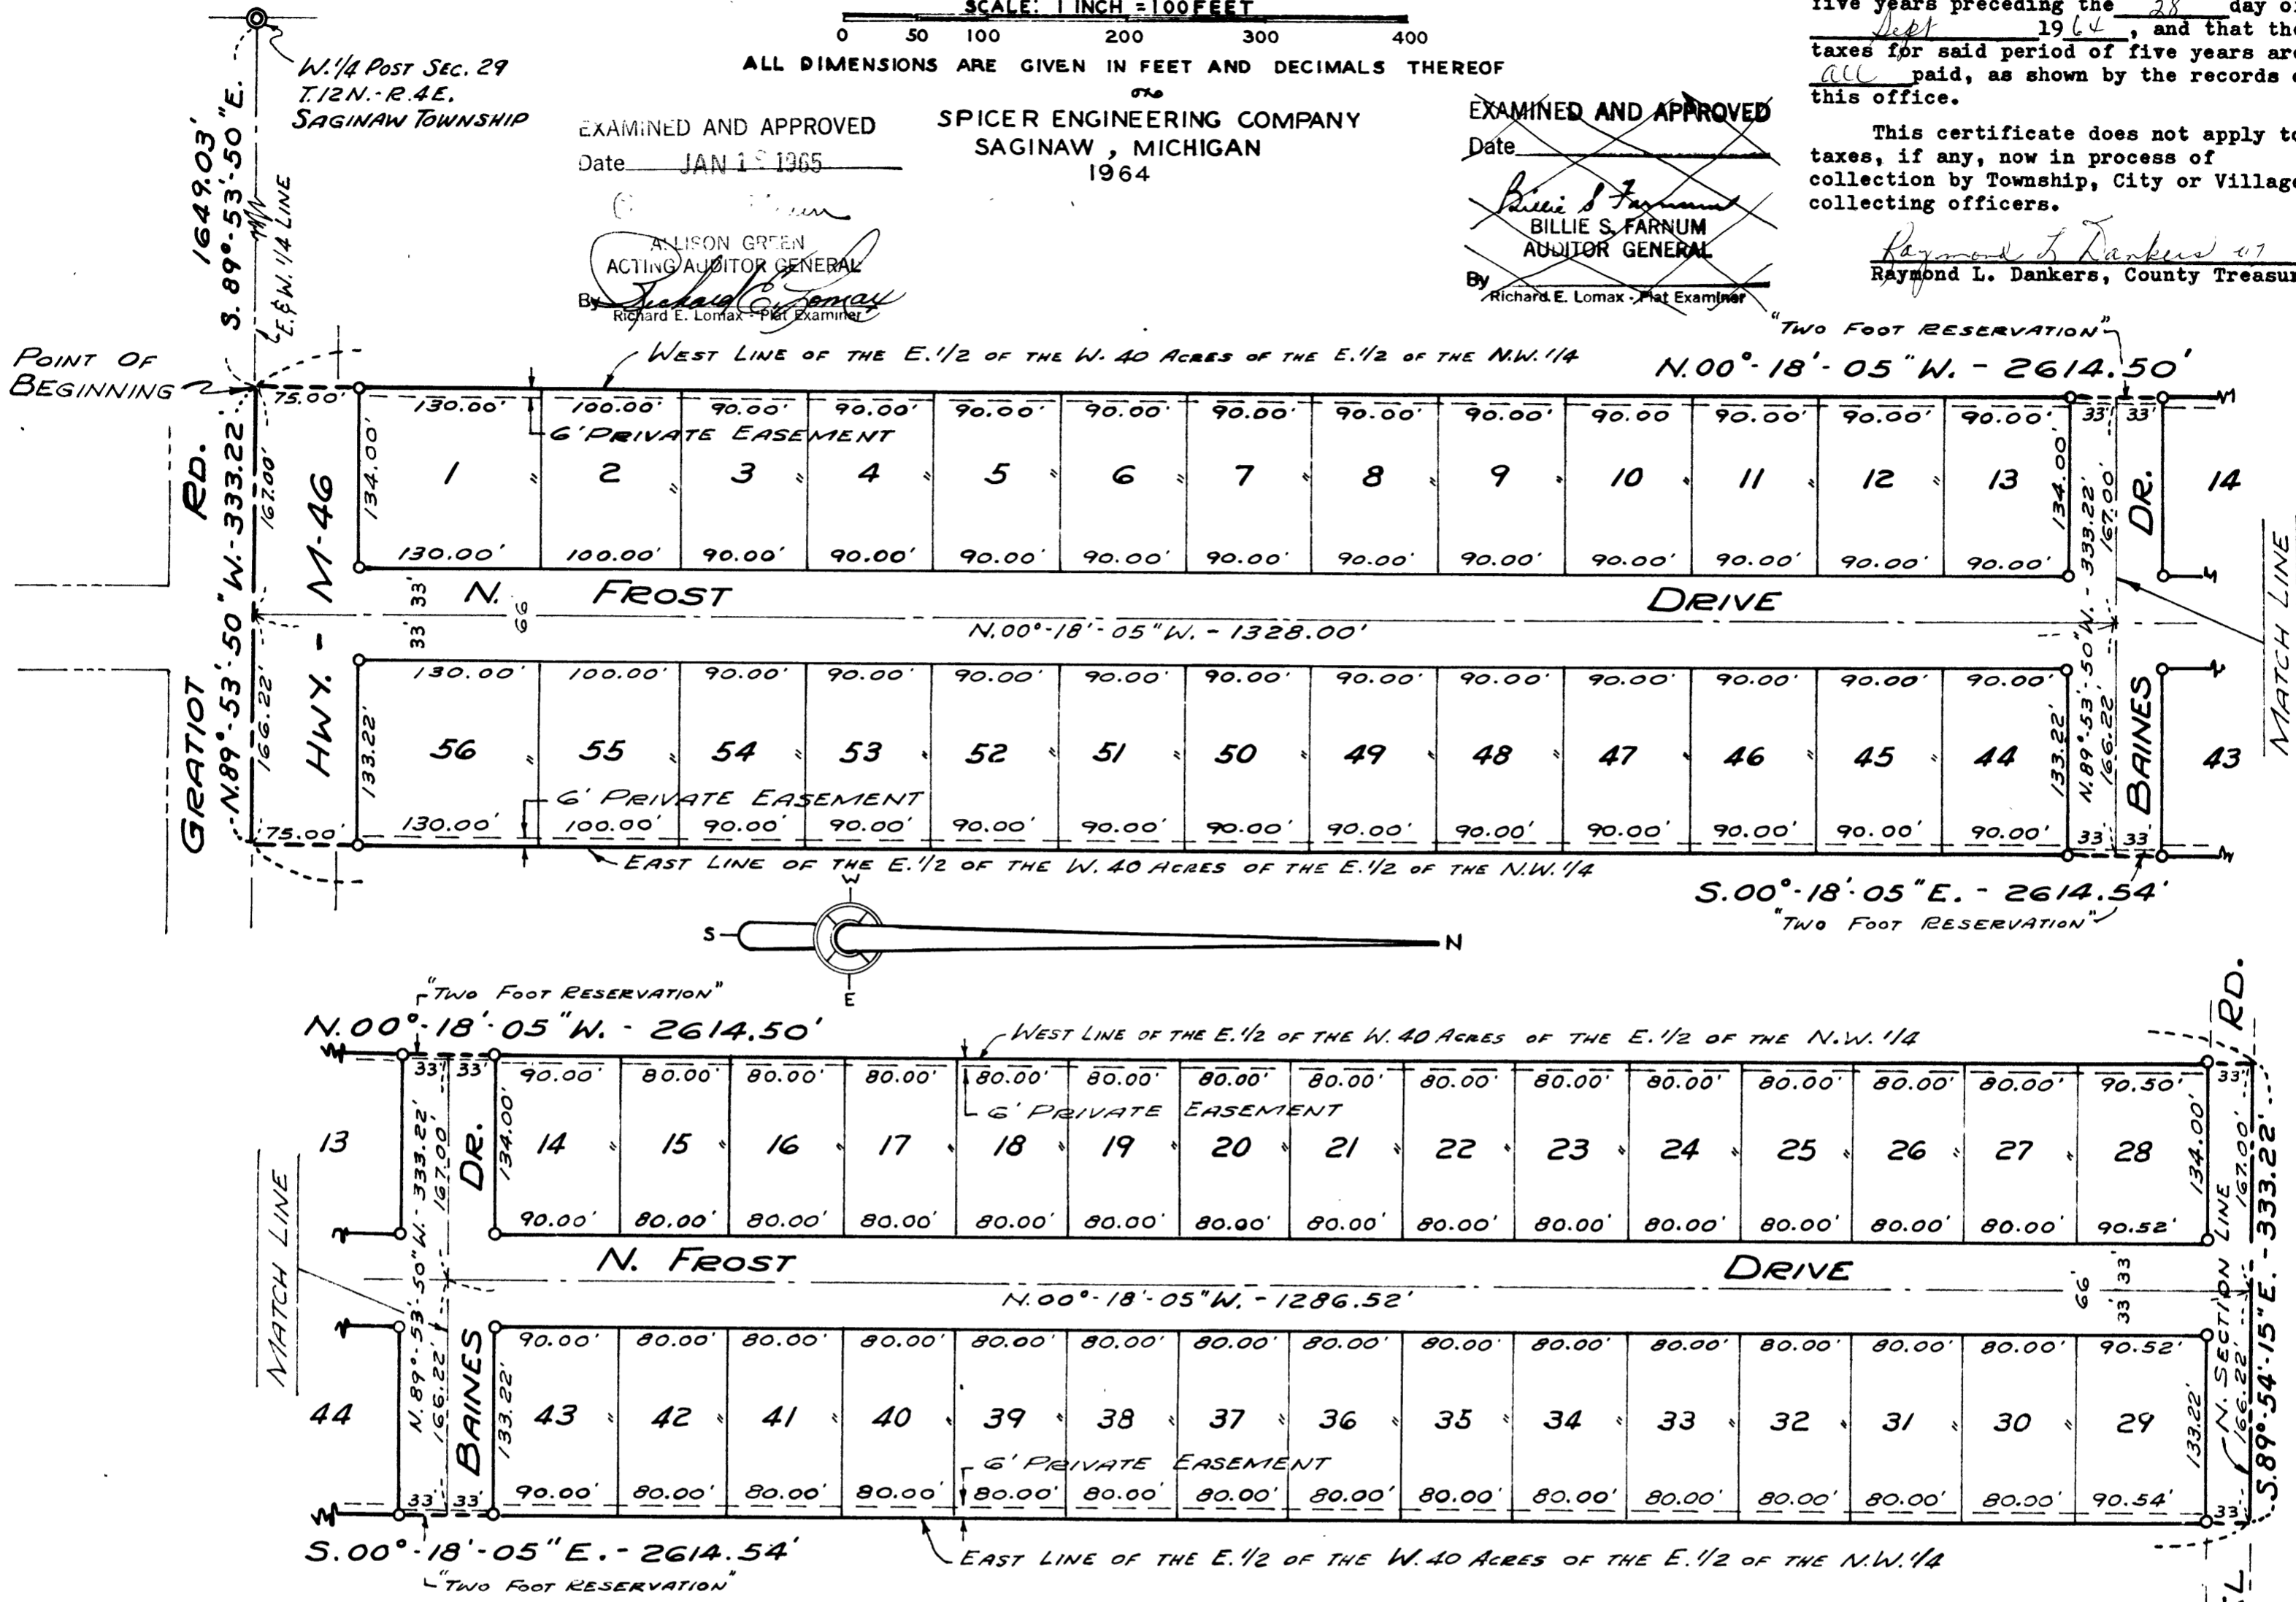 SCALE: 1 INCH = 100 FEET
0 50 100 200 300 400
ALL DIMENSIONS ARE GIVEN IN FEET AND DECIMALS THEREOF
SPICER ENGINEERING COMPANY
SAGINAW, MICHIGAN
1964
W. 1/4 POST SEC. 29
T.12N.-R.4E.
SAGINAW TOWNSHIP
1649.03'
S. 89°-53'-50"E.
E. & W. 1/4 LINE
EXAMINED AND APPROVED
Date JAN 1 1965
ALLISON GREEN
ACTING AUDITOR GENERAL
By Richard E. Lomax
Richard E. Lomax - Plat Examiner
EXAMINED AND APPROVED
Date
Billie S Farnum
BILLIE S. FARNUM
AUDITOR GENERAL
By
Richard E. Lomax - Plat Examiner
five years preceding the 28 day of
Sept 1964, and that the
taxes for said period of five years are
all paid, as shown by the records o
this office.
This certificate does not apply to
taxes, if any, now in process of
collection by Township, City or Village
collecting officers.
Raymond L Dankers
Raymond L. Dankers, County Treasur
"TWO FOOT RESERVATION"
POINT OF
BEGINNING
WEST LINE OF THE E. 1/2 OF THE W. 40 ACRES OF THE E. 1/2 OF THE N.W. 1/4
N.00°-18'-05"W. - 2614.50'
75.00' 130.00' 100.00' 90.00' 90.00' 90.00' 90.00' 90.00' 90.00' 90.00' 90.00 90.00' 90.00' 90.00' 33' 33'
6' PRIVATE EASEMENT
134.00' 1 2 3 4 5 6 7 8 9 10 11 12 13 134.00' 14
130.00' 100.00' 90.00' 90.00' 90.00' 90.00' 90.00' 90.00' 90.00' 90.00' 90.00' 90.00' 90.00'
GRATIOT RD.
N.89°-53'-50"W.-333.22'
167.00'
166.22'
HWY. - M-46
33' 33'
66
N. FROST DRIVE
N.00°-18'-05"W. - 1328.00'
N.89°-53'-50"W. - 333.22'
167.00'
166.22'
BAINES DR.
MATCH LINE
130.00' 100.00' 90.00' 90.00' 90.00' 90.00' 90.00' 90.00' 90.00' 90.00' 90.00' 90.00' 90.00'
133.22' 56 55 54 53 52 51 50 49 48 47 46 45 44 133.22' 43
6' PRIVATE EASEMENT
75.00' 130.00' 100.00' 90.00' 90.00' 90.00' 90.00' 90.00' 90.00' 90.00' 90.00' 90.00' 90.00' 90.00' 33' 33'
EAST LINE OF THE E. 1/2 OF THE W. 40 ACRES OF THE E. 1/2 OF THE N.W. 1/4
S.00°-18'-05"E. - 2614.54'
"TWO FOOT RESERVATION"
W
S N
E
"TWO FOOT RESERVATION"
N.00°-18'-05"W. - 2614.50'
WEST LINE OF THE E. 1/2 OF THE W. 40 ACRES OF THE E. 1/2 OF THE N.W. 1/4
33' 33' 90.00' 80.00' 80.00' 80.00' 80.00' 80.00' 80.00' 80.00' 80.00' 80.00' 80.00' 80.00' 80.00' 80.00' 90.50' 33'
6' PRIVATE EASEMENT
13 134.00' 14 15 16 17 18 19 20 21 22 23 24 25 26 27 28 134.00'
90.00' 80.00' 80.00' 80.00' 80.00' 80.00' 80.00' 80.00' 80.00' 80.00' 80.00' 80.00' 80.00' 80.00' 90.52'
MATCH LINE
N.89°-53'-50"W.- 333.22'
167.00'
166.22'
BAINES DR.
N. FROST DRIVE
N.00°-18'-05"W. - 1286.52'
66'
33' 33'
RD.
N. SECTION LINE
167.00'
166.22'
S.89°-54'-15"E. - 333.22'
90.00' 80.00' 80.00' 80.00' 80.00' 80.00' 80.00' 80.00' 80.00' 80.00' 80.00' 80.00' 80.00' 80.00' 90.52'
44 133.22' 43 42 41 40 39 38 37 36 35 34 33 32 31 30 29 133.22'
6' PRIVATE EASEMENT
33' 33' 90.00' 80.00' 80.00' 80.00' 80.00' 80.00' 80.00' 80.00' 80.00' 80.00' 80.00' 80.00' 80.00' 80.00' 90.54' 33'
S.00°-18'-05"E. - 2614.54'
EAST LINE OF THE E. 1/2 OF THE W. 40 ACRES OF THE E. 1/2 OF THE N.W. 1/4
"TWO FOOT RESERVATION"